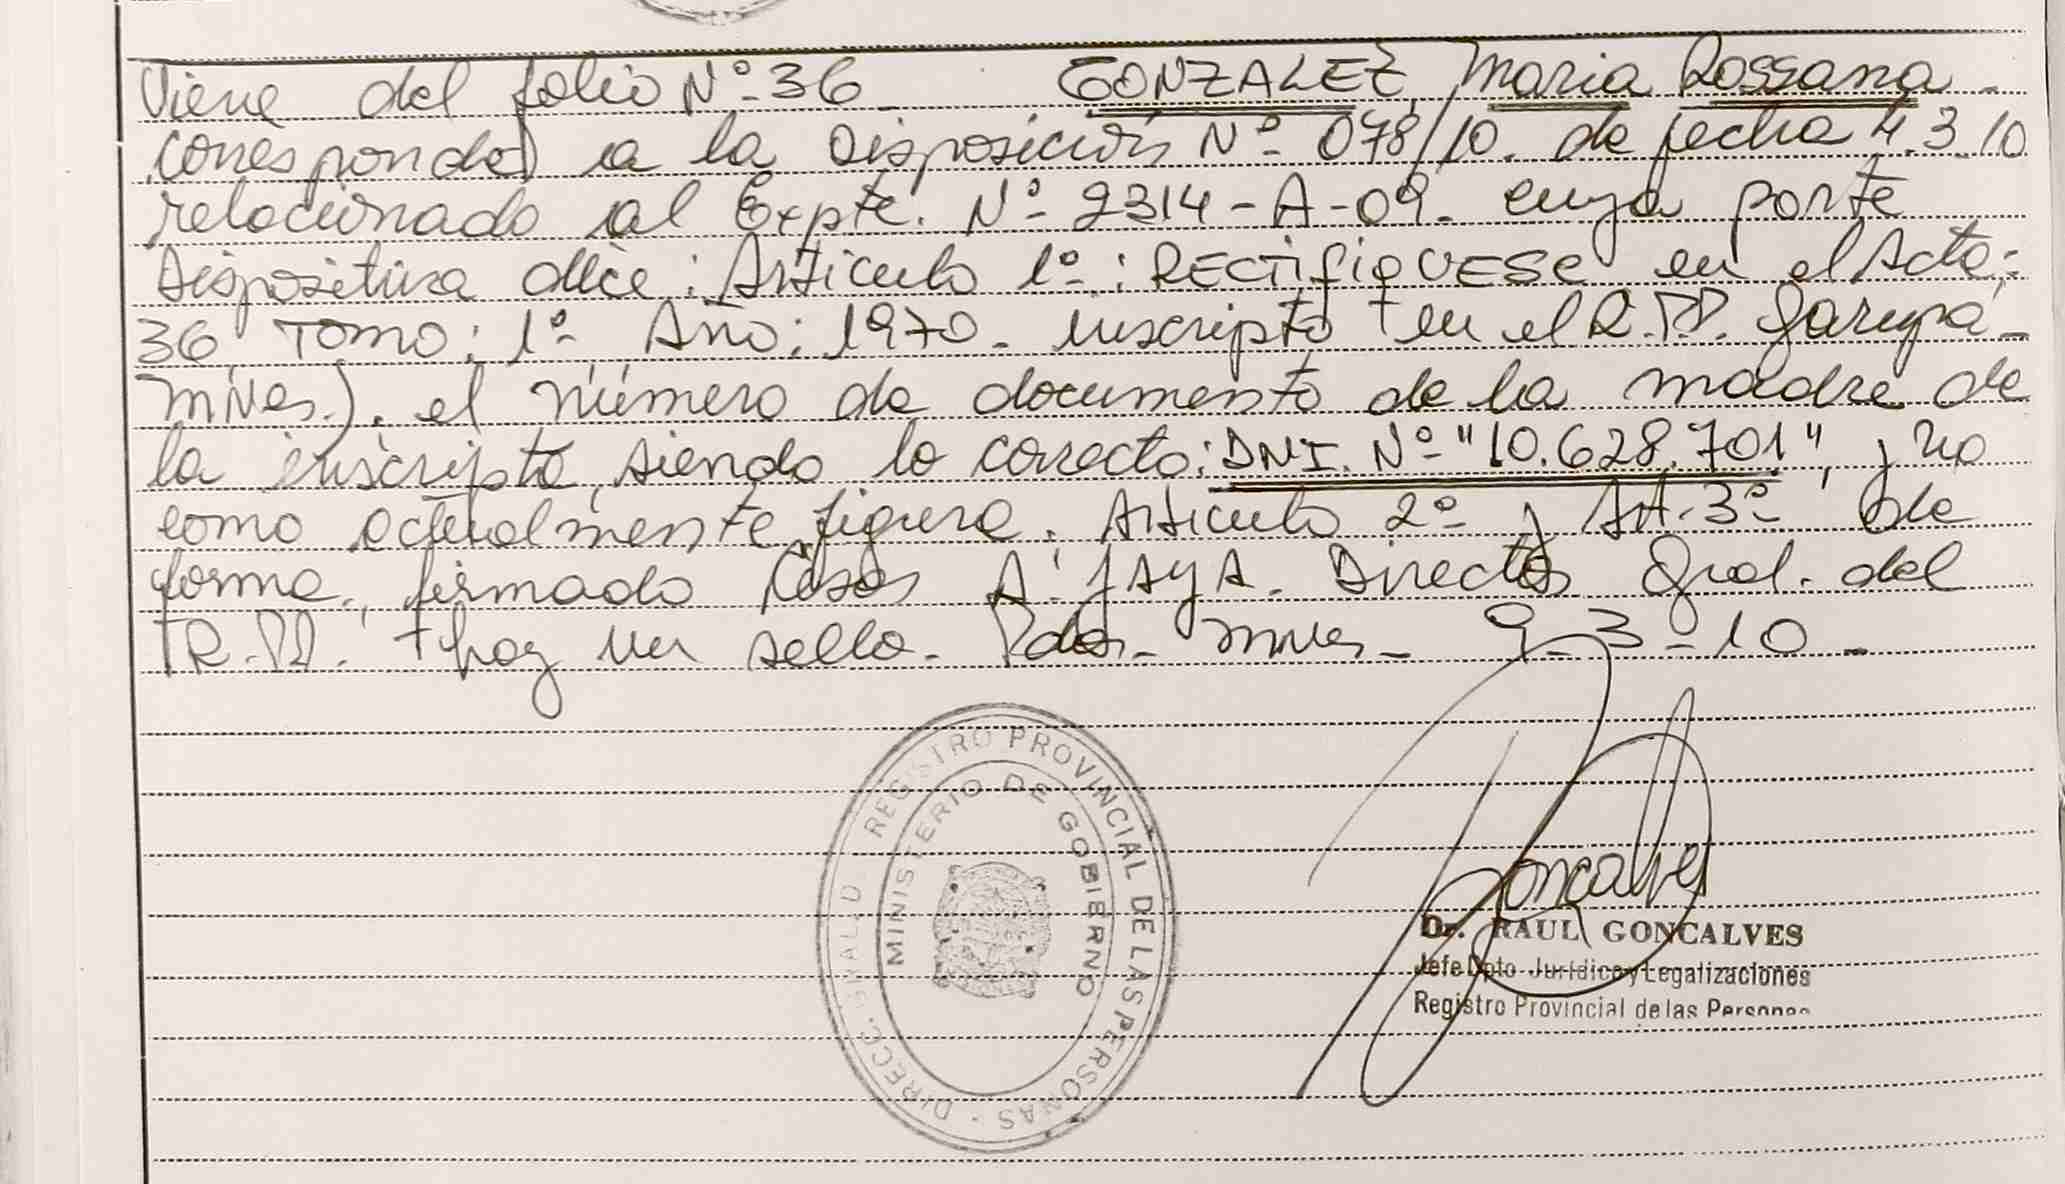 Viene del folio Nº 36 - GONZALEZ, Maria Rossana -
corresponde a la Disposición Nº 078/10. de fecha 4.3.10
relacionado al Expte. Nº 2314-A-09. cuya parte
Dispositiva dice: Articulo 1º: RECTIFIQUESE en el Acta:
36, Tomo: 1º Año: 1970 - inscripto en el R.P.P. Garupá -
Mnes.). el número de documento de la madre de
la inscripta, siendo lo correcto: DNI. Nº "10.628.701", y no
como actualmente figura. Articulo 2º y Art. 3º de
forma. firmado A. Director Gral. del
R.PP. hay un sello. Pdas. Mnes. 9-3-10 -
REGISTRO PROVINCIAL DE LAS PERSONAS - DIRECC. GRAL.
MINISTERIO DE GOBIERNO
Goncalves
Dr. RAUL GONCALVES
Jefe Dpto Jurídico y Legalizaciones
Registro Provincial de las Personas